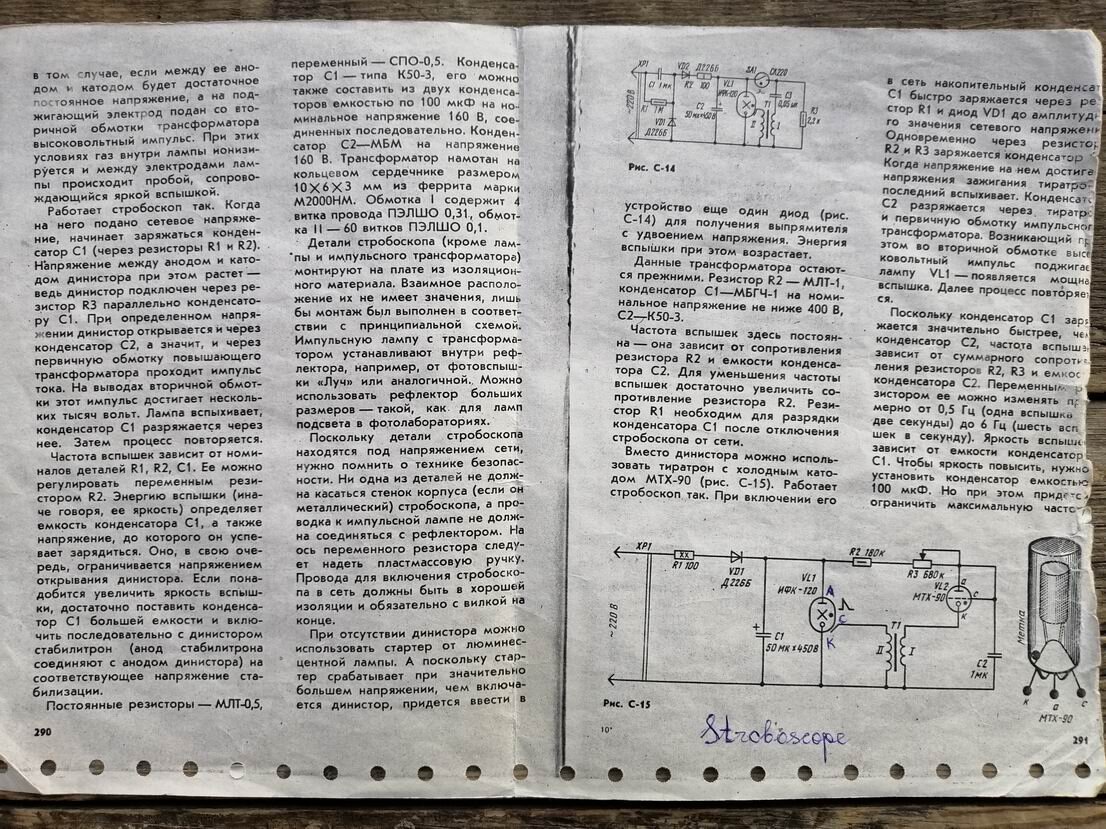 в том случае, если между ее ано-
дом и катодом будет достаточное
постоянное напряжение, а на под-
жигающий электрод подан со вто-
ричной обмотки трансформатора
высоковольтный импульс. При этих
условиях газ внутри лампы ионизи-
руется и между электродами лам-
пы происходит пробой, сопрово-
ждающийся яркой вспышкой.
Работает стробоскоп так. Когда
на него подано сетевое напряже-
ние, начинает заряжаться конден-
сатор С1 (через резисторы R1 и R2).
Напряжение между анодом и като-
дом динистора при этом растет —
ведь динистор подключен через ре-
зистор R3 параллельно конденсато-
ру С1. При определенном напря-
жении динистор открывается и через
конденсатор С2, а значит, и через
первичную обмотку повышающего
трансформатора проходит импульс
тока. На выводах вторичной обмот-
ки этот импульс достигает несколь-
ких тысяч вольт. Лампа вспыхивает,
конденсатор С1 разряжается через
нее. Затем процесс повторяется.
Частота вспышек зависит от номи-
налов деталей R1, R2, С1. Ее можно
регулировать переменным рези-
стором R2. Энергию вспышки (ина-
че говоря, ее яркость) определяет
емкость конденсатора С1, а также
напряжение, до которого он успе-
вает зарядиться. Оно, в свою оче-
редь, ограничивается напряжением
открывания динистора. Если пона-
добится увеличить яркость вспыш-
ки, достаточно поставить конденса-
тор С1 большей емкости и вклю-
чить последовательно с динистором
стабилитрон (анод стабилитрона
соединяют с анодом динистора) на
соответствующее напряжение ста-
билизации.
Постоянные резисторы — МЛТ-0,5,
290
переменный — СПО-0,5. Конденса-
тор С1 — типа К50-3, его можно
также составить из двух конденса-
торов емкостью по 100 мкФ на но-
минальное напряжение 160 В, сое-
диненных последовательно. Конден-
сатор С2—МБМ на напряжение
160 В. Трансформатор намотан на
кольцевом сердечнике размером
10×6×3 мм из феррита марки
М2000НМ. Обмотка I содержит 4
витка провода ПЭЛШО 0,31, обмот-
ка II — 60 витков ПЭЛШО 0,1.
Детали стробоскопа (кроме лам-
пы и импульсного трансформатора)
монтируют на плате из изоляцион-
ного материала. Взаимное располо-
жение их не имеет значения, лишь
бы монтаж был выполнен в соответ-
ствии с принципиальной схемой.
Импульсную лампу с трансформа-
тором устанавливают внутри реф-
лектора, например, от фотовспыш-
ки «Луч» или аналогичной. Можно
использовать рефлектор больших
размеров — такой, как для ламп
подсвета в фотолабораториях.
Поскольку детали стробоскопа
находятся под напряжением сети,
нужно помнить о технике безопас-
ности. Ни одна из деталей не долж-
на касаться стенок корпуса (если он
металлический) стробоскопа, а про-
водка к импульсной лампе не долж-
на соединяться с рефлектором. На
ось переменного резистора следу-
ет надеть пластмассовую ручку.
Провода для включения стробоско-
па в сеть должны быть в хорошей
изоляции и обязательно с вилкой на
конце.
При отсутствии динистора можно
использовать стартер от люминес-
центной лампы. А поскольку стар-
тер срабатывает при значительно
большем напряжении, чем включа-
ется динистор, придется ввести в
XP1
~ 220 В
C1 1мк
VD2 Д226Б
R2 100
R1 1М
VD1
Д226Б
C2
50мк×450В
VL1
ИФК-120
SA1
СК220
C3
T1
II I
R3
2,2к
Рис. С-14
устройство еще один диод (рис.
С-14) для получения выпрямителя
с удвоением напряжения. Энергия
вспышки при этом возрастает.
Данные трансформатора остают-
ся прежними. Резистор R2 — МЛТ-1,
конденсатор С1—МБГЧ-1 на номи-
нальное напряжение не ниже 400 В,
С2—К50-3.
Частота вспышек здесь постоян-
на — она зависит от сопротивления
резистора R2 и емкости конденса-
тора С2. Для уменьшения частоты
вспышек достаточно увеличить со-
противление резистора R2. Рези-
стор R1 необходим для разрядки
конденсатора С1 после отключения
стробоскопа от сети.
Вместо динистора можно исполь-
зовать тиратрон с холодным като-
дом МТХ-90 (рис. С-15). Работает
стробоскоп так. При включении его
в сеть накопительный конденса
С1 быстро заряжается через ре
стор R1 и диод VD1 до амплитуд
го значения сетевого напряжен
Одновременно через резистор
R2 и R3 заряжается конденсатор
Когда напряжение на нем достига
напряжения зажигания тиратро
последний вспыхивает. Конденсат
С2 разряжается через тиратр
и первичную обмотку импульсног
трансформатора. Возникающий п
этом во вторичной обмотке высо
ковольтный импульс поджигае
лампу VL1 — появляется мощна
вспышка. Далее процесс повторяет
ся.
Поскольку конденсатор С1 заря
жается значительно быстрее, чем
конденсатор С2, частота вспыше
зависит от суммарного сопроти
ления резисторов R2, R3 и емкос
конденсатора С2. Переменным р
зистором ее можно изменять пр
мерно от 0,5 Гц (одна вспышка
две секунды) до 6 Гц (шесть всп
шек в секунду). Яркость вспышe
зависит от емкости конденсатор
С1. Чтобы яркость повысить, нужно
установить конденсатор емкостью
100 мкФ. Но при этом придется
ограничить максимальную часто
XP1
~ 220 В
R1 100
VD1
Д226Б
C1
50 мк×450В
VL1
ИФК-120
А
С
К
R2 180к
R3 680к
VL2
МТХ-90
а
с
к
T1
II I
C2
1мк
Метка
к а с
МТХ-90
Рис. С-15
10*
Stroboscope
291